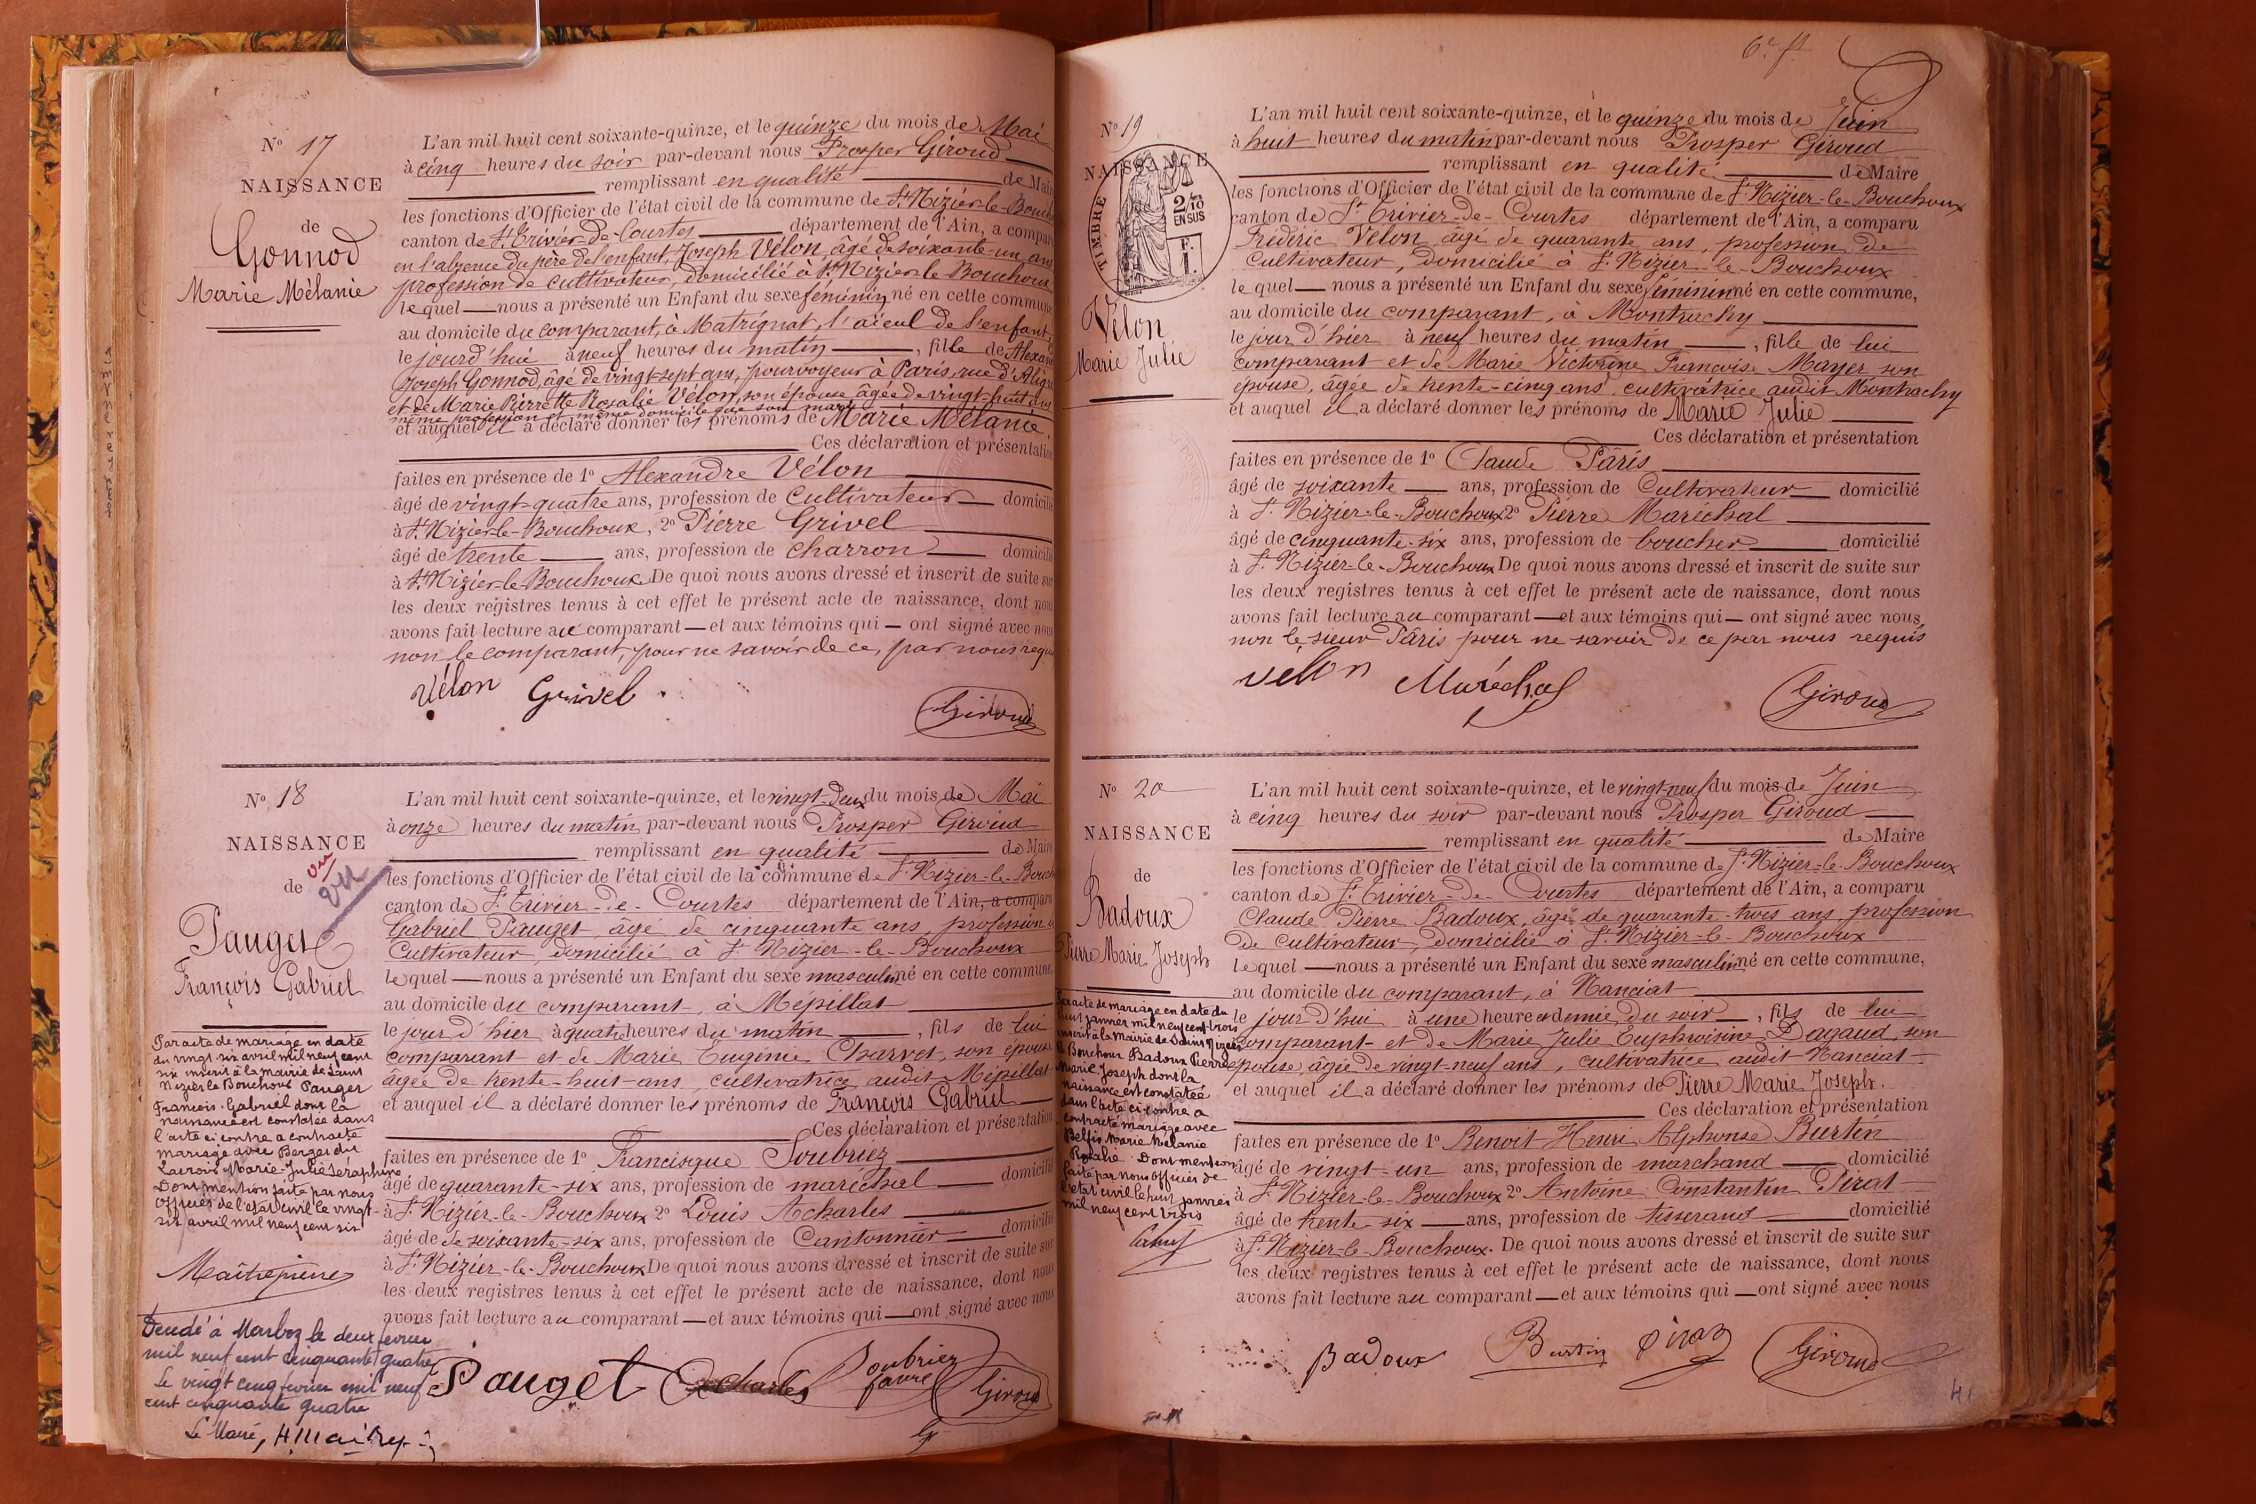 N° 17
NAISSANCE
de
Gonnod
Marie Mélanie
L'an mil huit cent soixante-quinze, et le quinze du mois de Mai
à cinq heures du soir par-devant nous Prosper Giroud
remplissant en qualité de Maire
les fonctions d'Officier de l'état civil de la commune de St Nizier-le-Bouch
canton de St Trivier-de-Courtes département de l'Ain, a comparu
en l'absence du père de l'enfant, Joseph Vélon, âgé de soixante-un ans
profession de cultivateur, domicilié à St Nizier-le-Bouchoux
lequel nous a présenté un Enfant du sexe féminin né en cette commune
au domicile du comparant, à Matrignat, l'aïeul de l'enfant,
le jourd'hui à neuf heures du matin, fille de Alexan
Joseph Gonnod, âgé de vingt-sept ans, pourvoyeur à Paris, rue d'Alig
et de Marie Pierrette Rosalie Vélon, son épouse âgée de vingt-huit ans
même profession et même domicile que son mari
et auquel il a déclaré donner les prénoms de Marie Mélanie.
Ces déclaration et présentation
faites en présence de 1° Alexandre Vélon
âgé de vingt-quatre ans, profession de Cultivateur domicilié
à St Nizier-le-Bouchoux, 2° Pierre Grivel
âgé de trente ans, profession de charron domicilié
à St Nizier-le-Bouchoux De quoi nous avons dressé et inscrit de suite sur
les deux registres tenus à cet effet le présent acte de naissance, dont nous
avons fait lecture au comparant et aux témoins qui ont signé avec nous
non le comparant, pour ne savoir de ce, par nous requ
Vélon Grivel Giroud
N° 18
NAISSANCE
vu
vu
de
Pauget
François Gabriel
L'an mil huit cent soixante-quinze, et le vingt-deux du mois de Mai
à onze heures du matin par-devant nous Prosper Giroud
remplissant en qualité de Maire
les fonctions d'Officier de l'état civil de la commune de St Nizier-le-Bouch
canton de St Trivier-de-Courtes département de l'Ain, a comparu
Gabriel Pauget, âgé de cinquante ans, profession d
Cultivateur, domicilié à St Nizier-le-Bouchoux
lequel nous a présenté un Enfant du sexe masculin né en cette commune,
au domicile du comparant, à Mépillat
le jour d'hier à quatre heures du matin, fils de lui
comparant et de Marie Eugénie Charvet, son épouse
âgée de trente-huit ans, cultivatrice audit Mépillat
et auquel il a déclaré donner les prénoms de François Gabriel
Ces déclaration et présentation
faites en présence de 1° Francisque Soubriez
âgé de quarante-six ans, profession de maréchal domicilié
à St Nizier-le-Bouchoux 2° Louis Acharles
âgé de de soixante-six ans, profession de Cantonnier domicilié
à St Nizier-le-Bouchoux De quoi nous avons dressé et inscrit de suite sur
les deux registres tenus à cet effet le présent acte de naissance, dont nous
avons fait lecture au comparant et aux témoins qui ont signé avec nous
Pauget Acharles Soubriez favre Giroud
Par acte de mariage en date
du vingt six avril mil neuf cent
six inscrit à la mairie de Saint
Nizier le Bouchoux Pauget
François-Gabriel dont la
naissance est constatée dans
l'acte ci contre a contracté
mariage avec Berger dit
Lacroix Marie-Julie Séraphine
Dont mention faite par nous
officier de l'état civil le vingt
six avril mil neuf cent six
Maîtrepierre
Décédé à Marboz le deux février
mil neuf cent cinquante quatre
Le vingt cinq février mil neuf
cent cinquante quatre
Le Maire,
6e f.
N° 19
NAISSANCE
TIMBRE
2/10
EN SUS
F.
I.
Vélon
Marie Julie
L'an mil huit cent soixante-quinze, et le quinze du mois de Juin
à huit heures du matin par-devant nous Prosper Giroud
remplissant en qualité de Maire
les fonctions d'Officier de l'état civil de la commune de St Nizier-le-Bouchoux
canton de St Trivier-de-Courtes département de l'Ain, a comparu
Frédéric Vélon, âgé de quarante ans, profession de
Cultivateur, domicilié à St Nizier-le-Bouchoux
lequel nous a présenté un Enfant du sexe féminin né en cette commune,
au domicile du comparant, à Montrachy
le jour d'hier à neuf heures du matin, fille de lui
comparant et de Marie Victorine Françoise Mayer son
épouse, âgée de trente-cinq ans, cultivatrice audit Montrachy
et auquel il a déclaré donner les prénoms de Marie Julie
Ces déclaration et présentation
faites en présence de 1° Claude Pâris
âgé de soixante ans, profession de Cultivateur domicilié
à St Nizier-le-Bouchoux 2° Pierre Maréchal
âgé de cinquante-six ans, profession de boucher domicilié
à St Nizier-le-Bouchoux De quoi nous avons dressé et inscrit de suite sur
les deux registres tenus à cet effet le présent acte de naissance, dont nous
avons fait lecture au comparant et aux témoins qui ont signé avec nous
non le sieur Pâris pour ne savoir de ce par nous requis
Velon Maréchal Giroud
N° 20
NAISSANCE
de
Badoux
Pierre Marie Joseph
L'an mil huit cent soixante-quinze, et le vingt-neuf du mois de Juin
à cinq heures du soir par-devant nous Prosper Giroud
remplissant en qualité de Maire
les fonctions d'Officier de l'état civil de la commune de St Nizier-le-Bouchoux
canton de St Trivier-de-Courtes département de l'Ain, a comparu
Claude Pierre Badoux, âgé de quarante-trois ans, profession
de Cultivateur, domicilié à St Nizier-le-Bouchoux
lequel nous a présenté un Enfant du sexe masculin né en cette commune,
au domicile du comparant, à Nanciat
le jour d'hui à une heure et demie du soir, fils de lui
comparant et de Marie Julie Euphroisine Dagaud, son
épouse, âgée de vingt-neuf ans, cultivatrice audit Nanciat
et auquel il a déclaré donner les prénoms de Pierre Marie Joseph.
Ces déclaration et présentation
faites en présence de 1° Benoit Henri Alphonse Burtin
âgé de vingt-un ans, profession de marchand domicilié
à St Nizier-le-Bouchoux 2° Antoine Constantin Pirat
âgé de trente-six ans, profession de tisserand domicilié
à St Nizier-le-Bouchoux. De quoi nous avons dressé et inscrit de suite sur
les deux registres tenus à cet effet le présent acte de naissance, dont nous
avons fait lecture au comparant et aux témoins qui ont signé avec nous
Badoux Burtin Pirat Giroud
Par acte de mariage en date du
huit janvier mil neuf cent trois
inscrit à la mairie de Saint Nizier
le Bouchoux Badoux Pierre
Marie Joseph dont la
naissance est constatée
dans l'acte ci contre a
contracté mariage avec
Belfis Marie Mélanie
Rosalie. Dont mention
faite par nous officier de
l'état civil le huit janvier
mil neuf cent trois